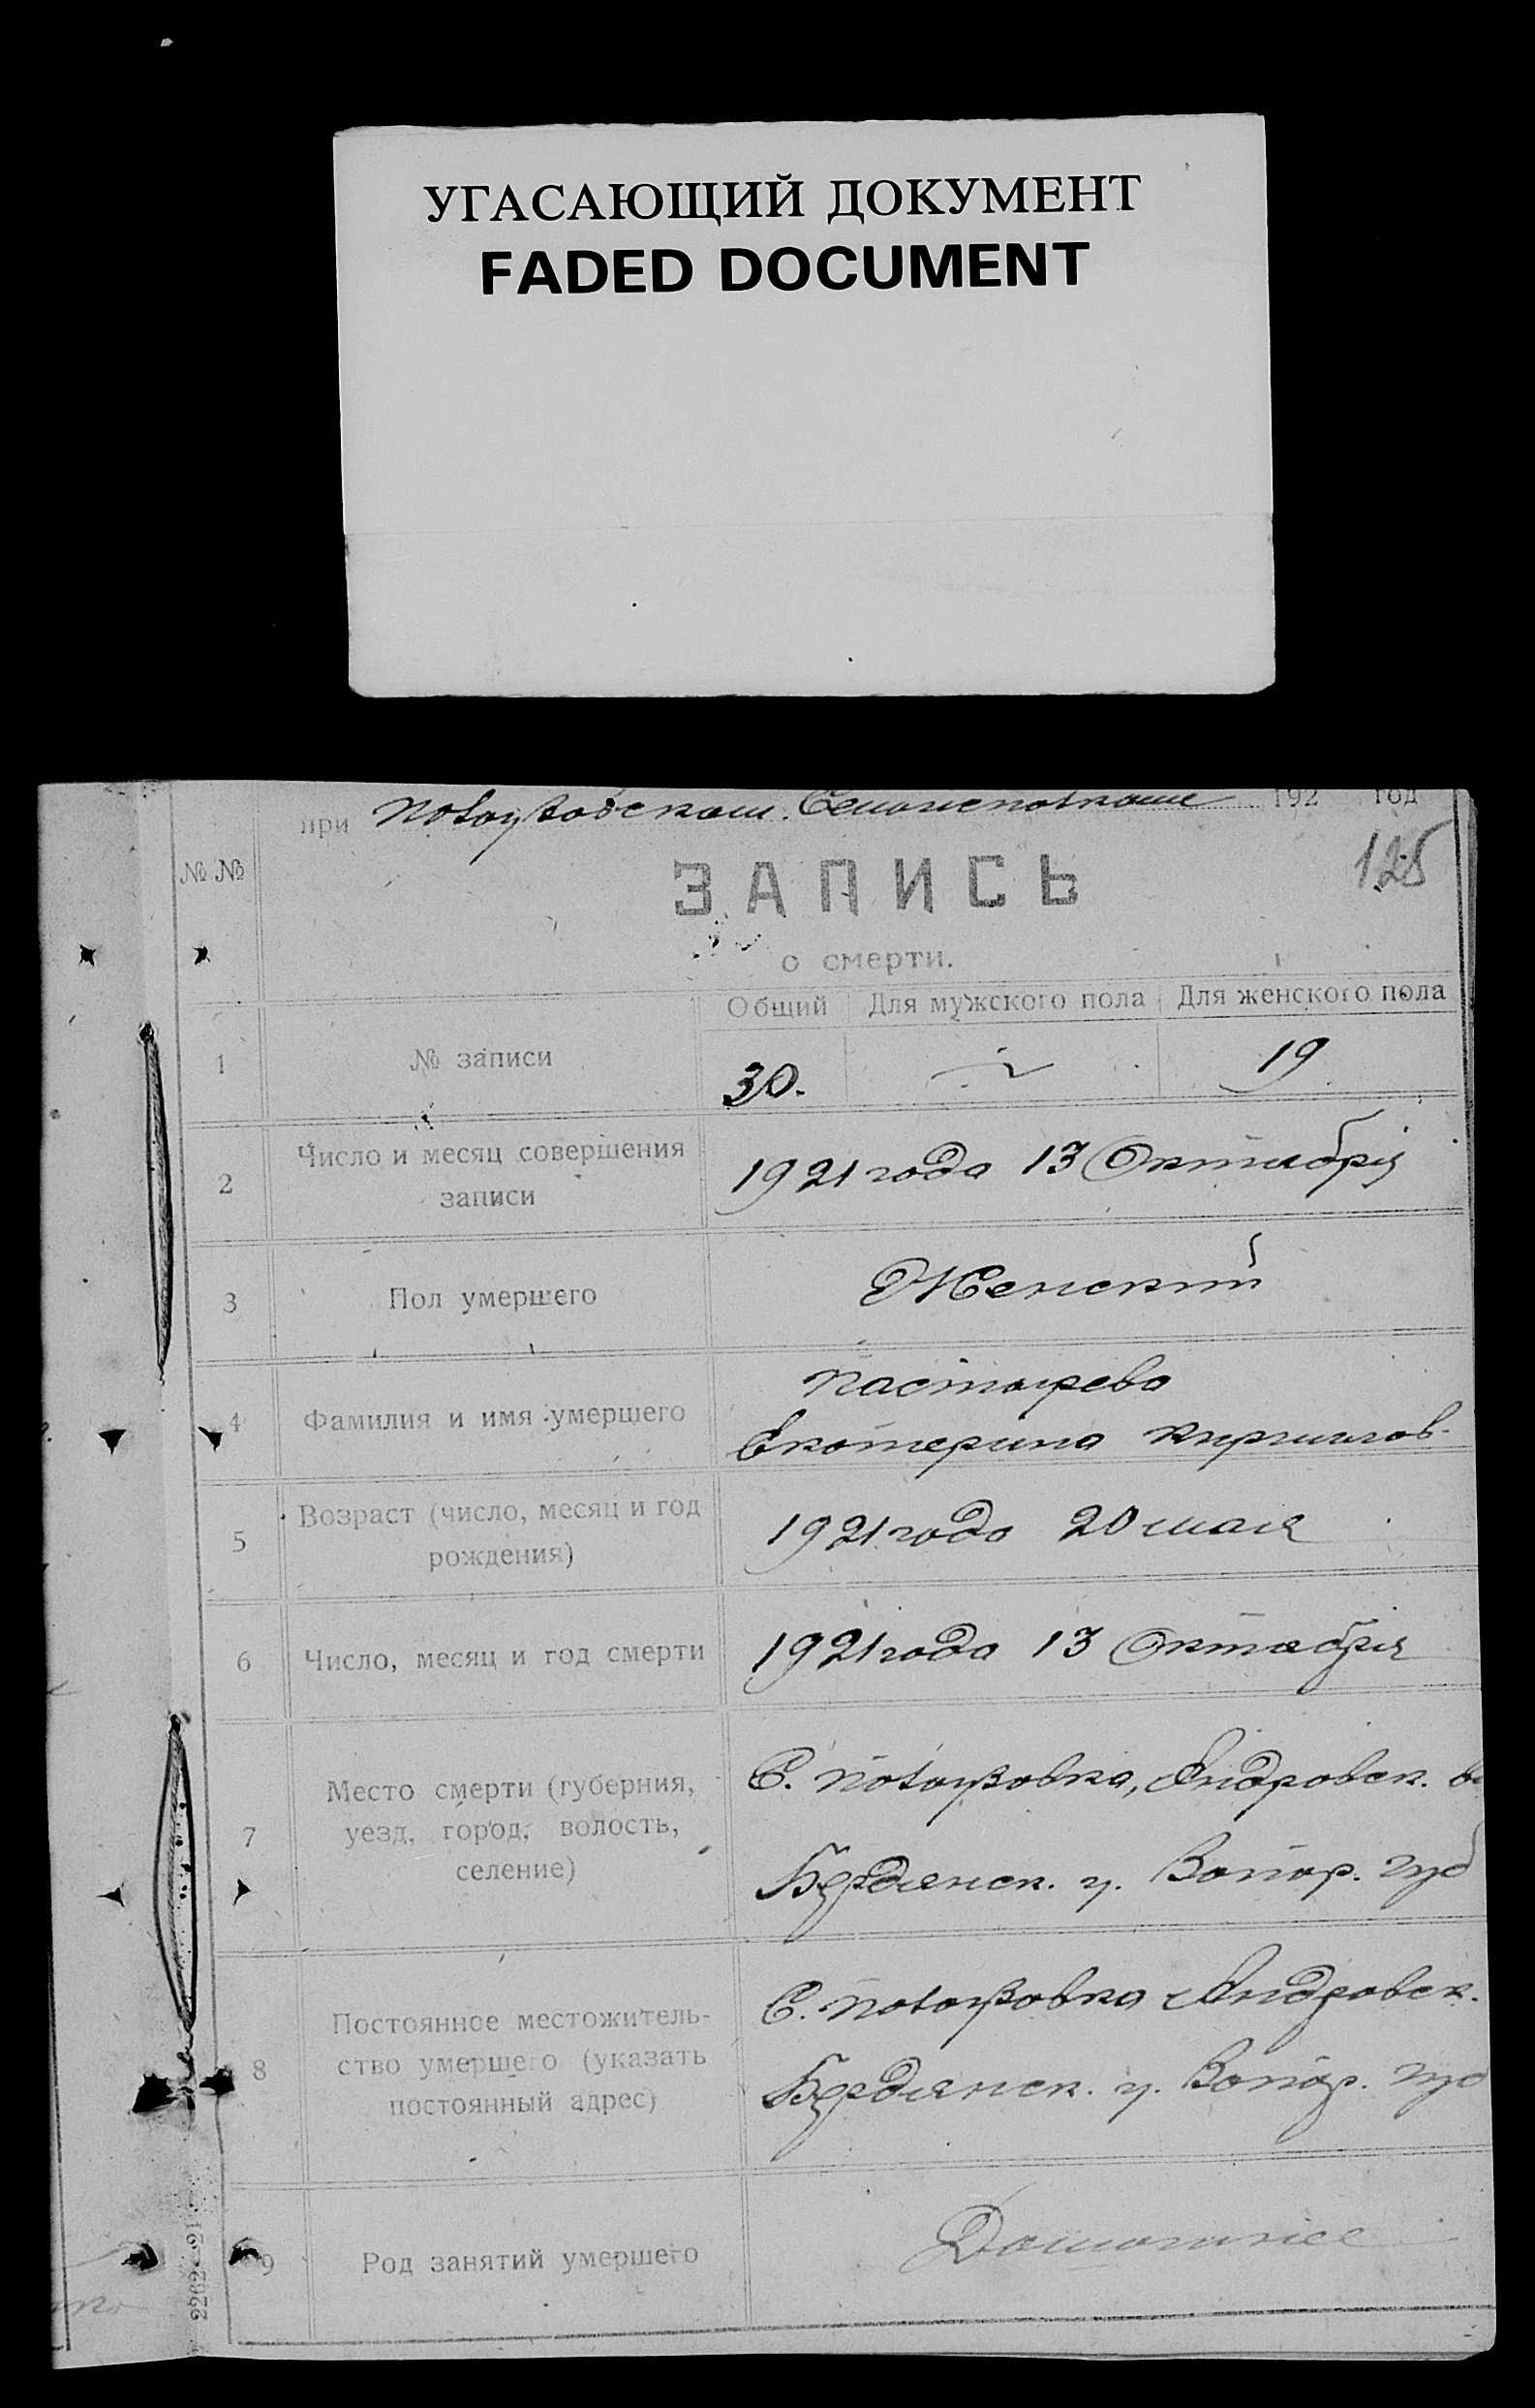 УГАСАЮЩИЙ ДОКУМЕНТ
FADED DOCUMENT
при 192 год
125
№ №
ЗАПИСЬ
о смерти.
Общий Для мужского пола Для женского пола
1 № записи 30. 19
2 Число и месяц совершения
записи
1921 года 13 Октября
3 Пол умершего Женский
4 Фамилия и имя умершего
Пастырева
Екатерина Кириллов.
5 Возраст (число, месяц и год
рождения)
1921 года 20 мая
6 Число, месяц и год смерти 1921 года 13 Октября
7 Место смерти (губерния,
уезд, город, волость,
селение)
С. Андровск.
Бердянск. у. Запор. губ
8 Постоянное местожитель-
ство умершего (указать
постоянный адрес)
С. Андровск.
Бердянск. у. Запор. губ
9 Род занятий умершего
2262—21